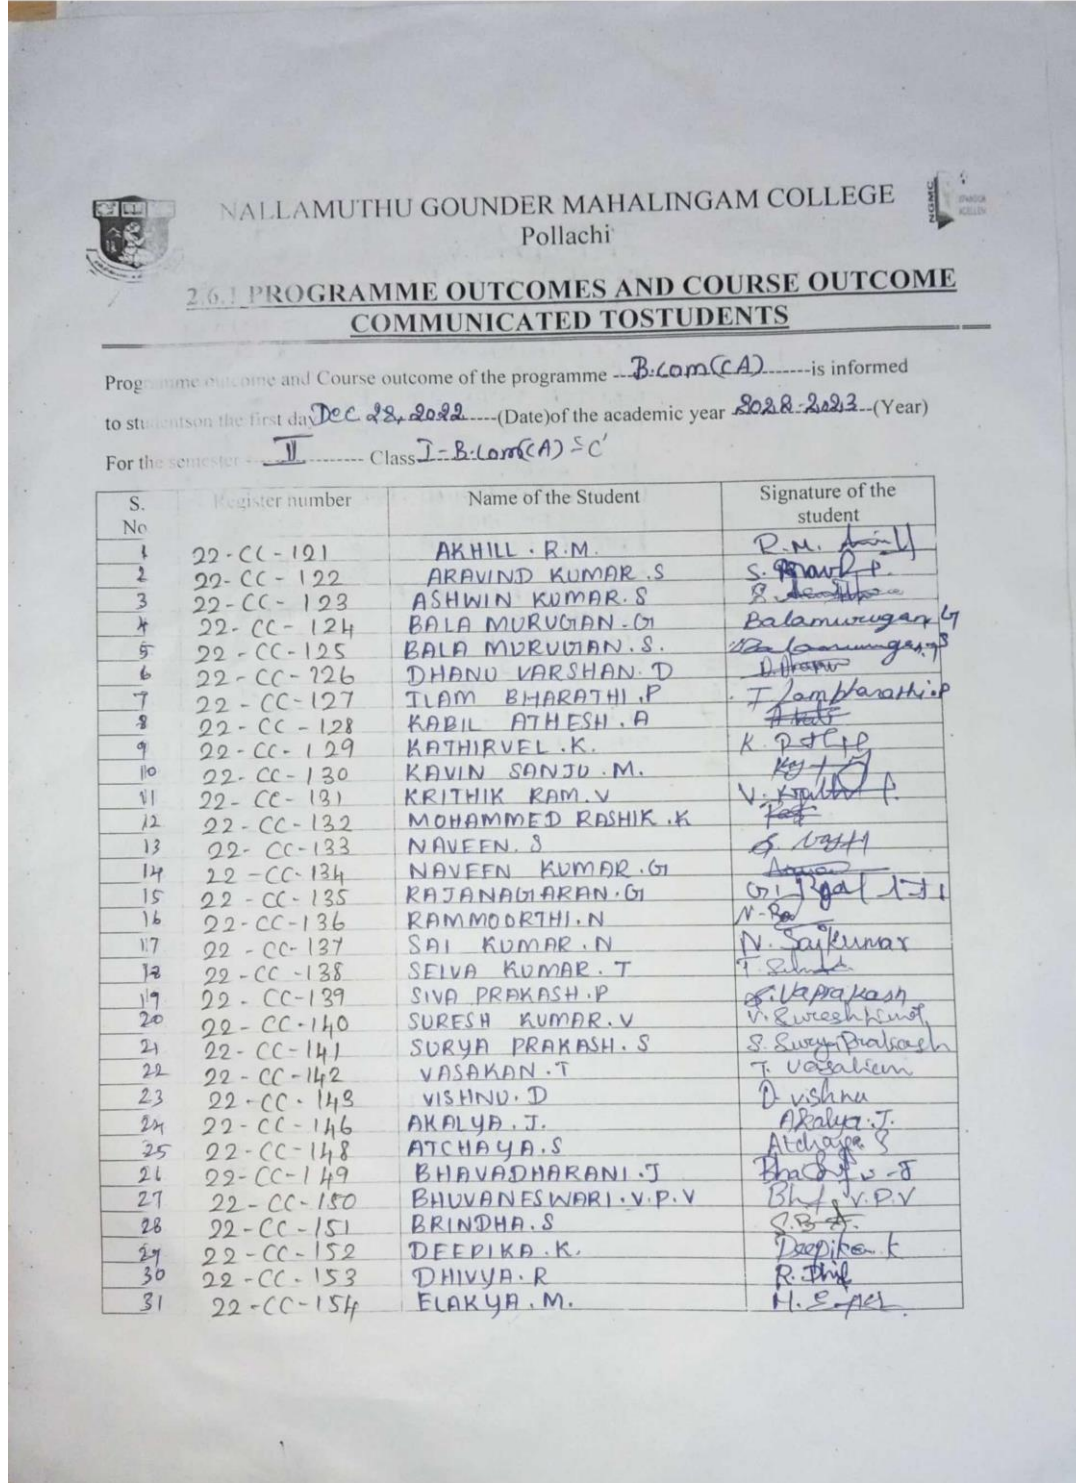 NALLAMUTHU GOUNDER MAHALINGAM COLLEGE
Pollachi
NGMC
2.6.1 PROGRAMME OUTCOMES AND COURSE OUTCOME
COMMUNICATED TOSTUDENTS
Programme outcome and Course outcome of the programme ---B.Com(CA)-------is informed
to studentson the first day Dec 28, 2022-----(Date)of the academic year 2022-2023--(Year)
For the semester ----II--------- Class I-B.Com(CA) - 'C'
S. No Register number Name of the Student Signature of the student
1 22-CC-121 AKHILL . R.M. R.M.
2 22-CC-122 ARAVIND KUMAR.S S.
3 22-CC-123 ASHWIN KUMAR.S S.
4 22-CC-124 BALA MURUGAN.G Balamurugan G
5 22-CC-125 BALA MURUGAN.S. Balamurugan.S
6 22-CC-126 DHANU VARSHAN.D
7 22-CC-127 ILAM BHARATHI.P Ilambharathi.P
8 22-CC-128 KABIL ATHESH.A
9 22-CC-129 KATHIRVEL.K. K.
10 22-CC-130 KAVIN SANJU.M.
11 22-CC-131 KRITHIK RAM.V V.
12 22-CC-132 MOHAMMED RASHIK.K
13 22-CC-133 NAVEEN.S
14 22-CC-134 NAVEEN KUMAR.G
15 22-CC-135 RAJANAGARAN.G G.
16 22-CC-136 RAMMOORTHI.N N.
17 22-CC-137 SAI KUMAR.N N. Saikumar
18 22-CC-138 SELVA KUMAR.T T.
19 22-CC-139 SIVA PRAKASH.P Sivaprakash
20 22-CC-140 SURESH KUMAR.V V. Sureshkumar
21 22-CC-141 SURYA PRAKASH.S S. SuryaPrakash
22 22-CC-142 VASAKAN.T T. Vasakan
23 22-CC-143 VISHNU.D D vishnu
24 22-CC-146 AKALYA.J. Akalya.J.
25 22-CC-148 ATCHAYA.S Atchaya S
26 22-CC-149 BHAVADHARANI.J
27 22-CC-150 BHUVANESWARI.V.P.V V.P.V
28 22-CC-151 BRINDHA.S
29 22-CC-152 DEEPIKA.K. Deepika.k
30 22-CC-153 DHIVYA.R R.
31 22-CC-154 ELAKYA.M. M.